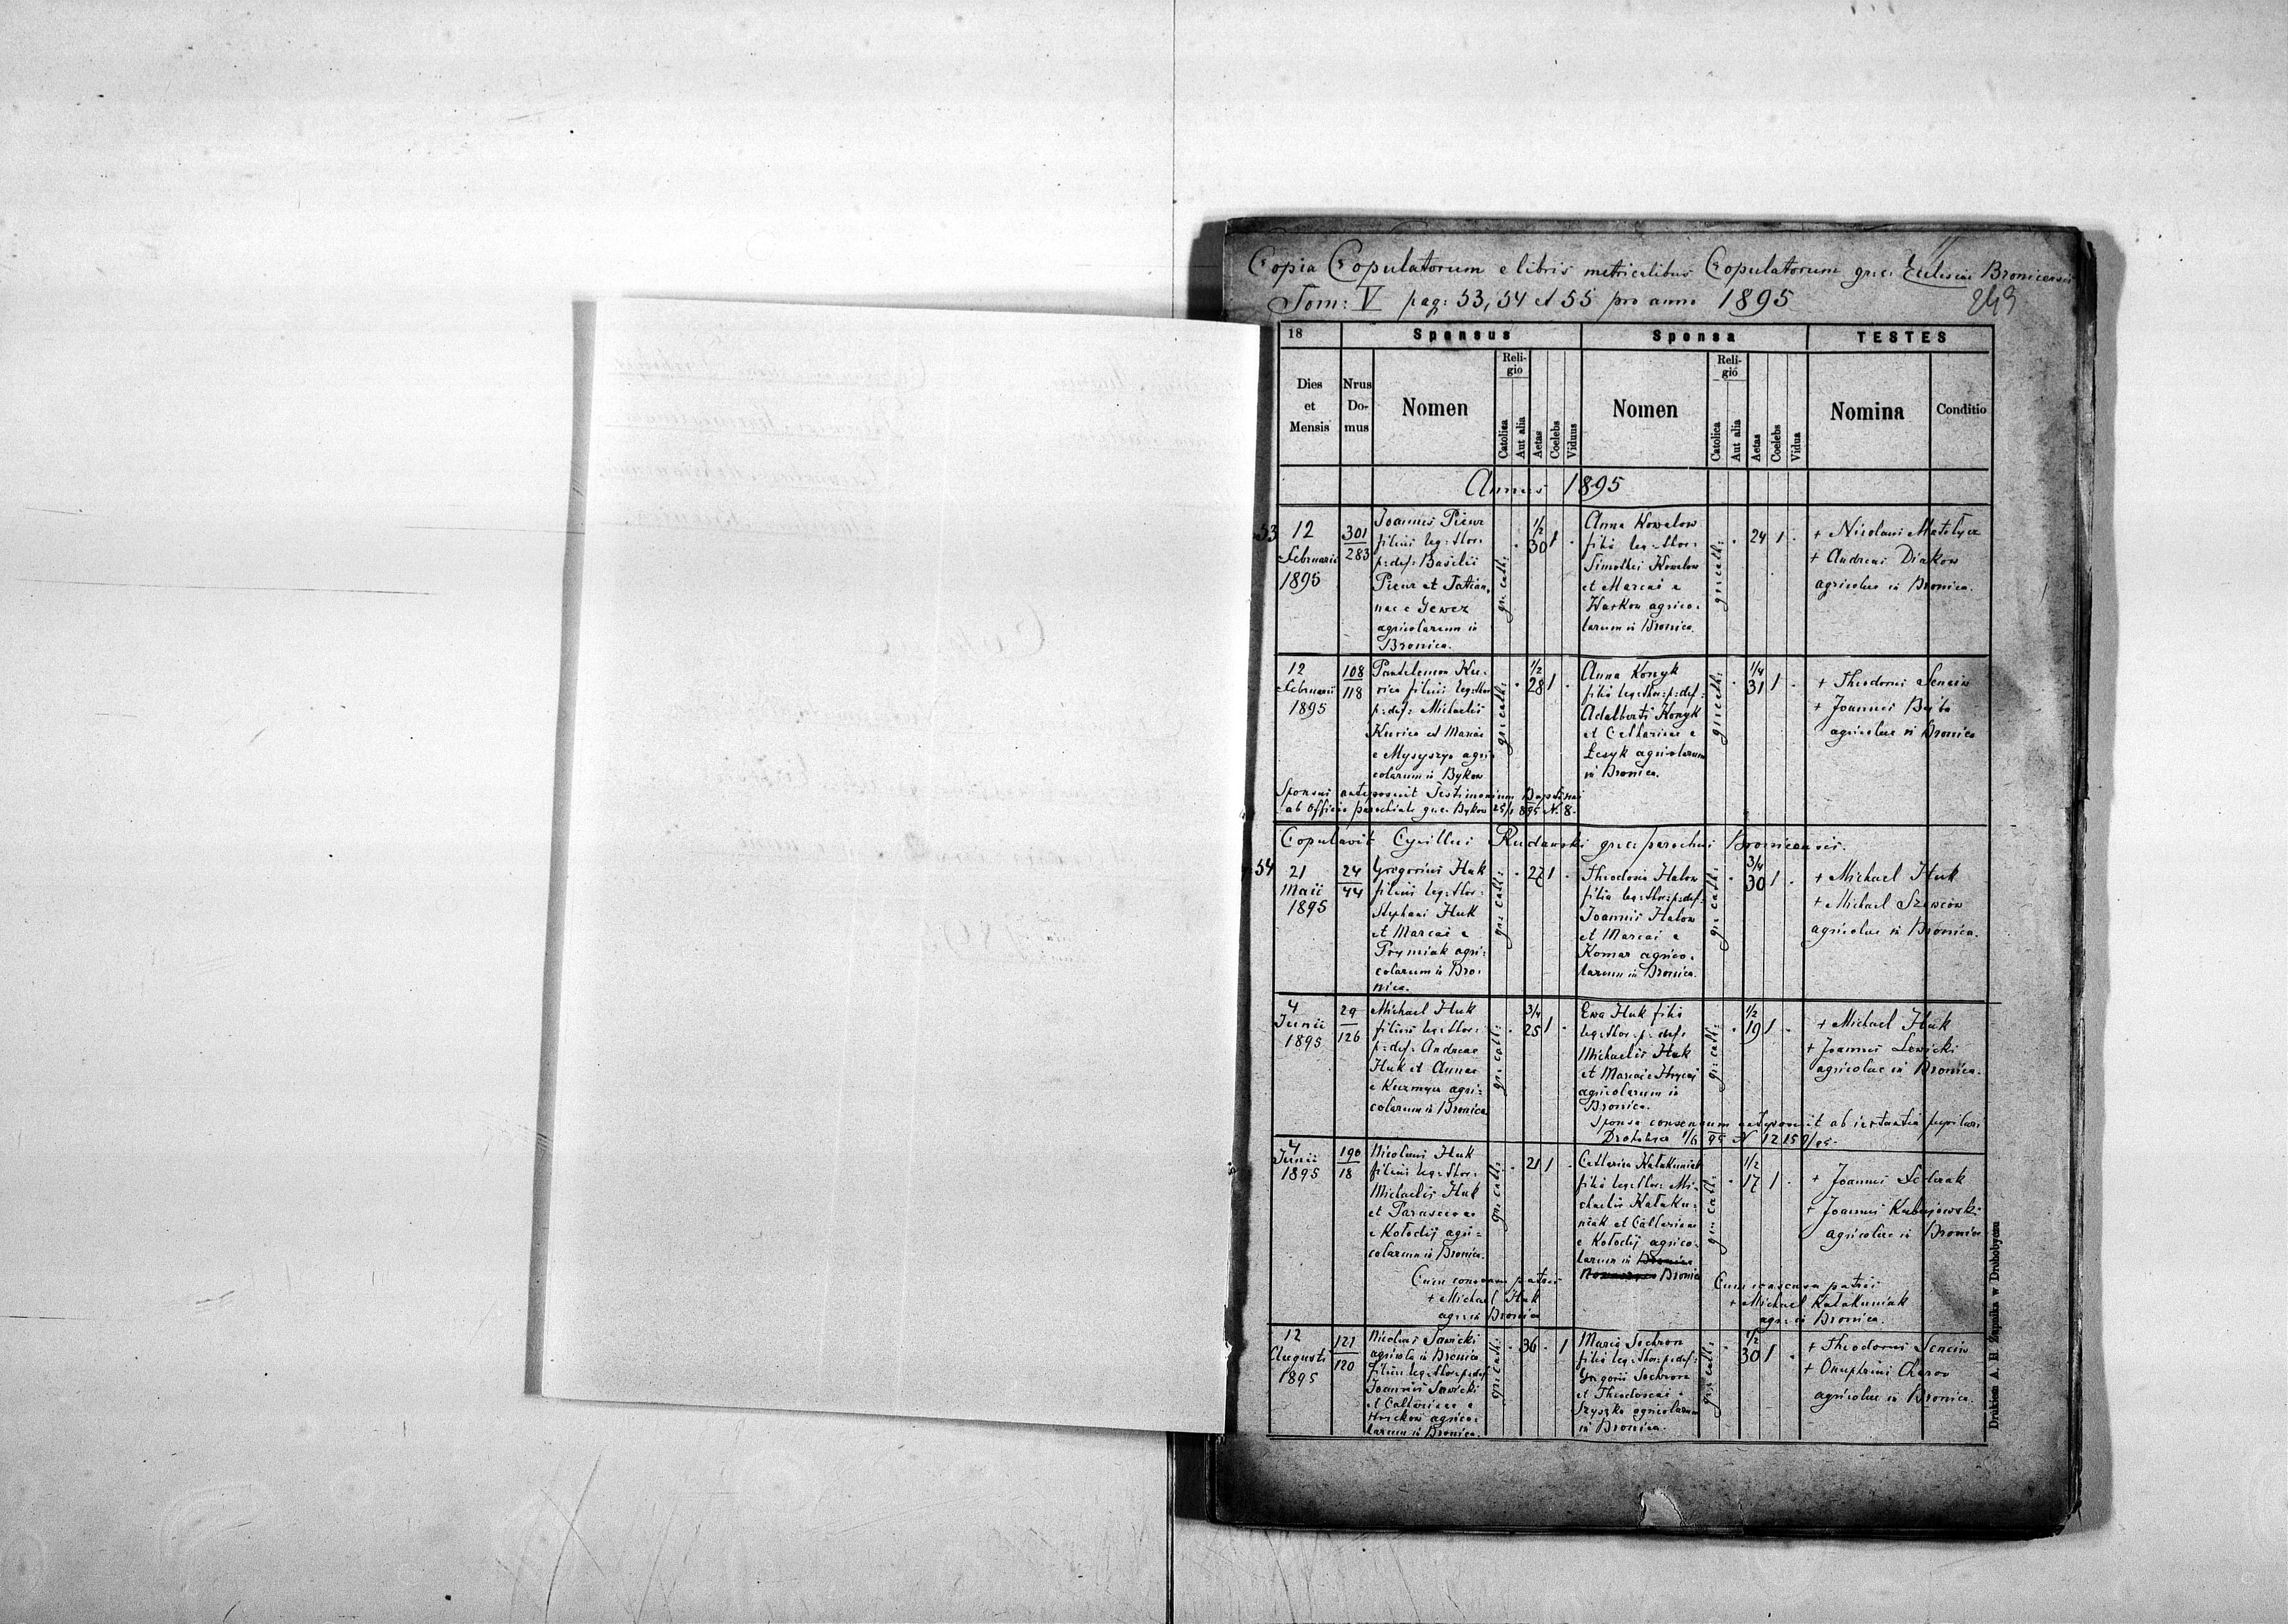 Copia Copulatorum e libris metricalibus Copulatorum gr: c: Ecclesiae Bronicensis
Tom: V pag: 53, 54 et 55 pro anno 1895
243
18 Sponsus Sponsa TESTES
Dies et Mensis
Nrus Domus
Nomen
Religio
Catolica
Aut alia
Aetas
Coelebs
Viduus
Nomen
Religió
Catolica
Aut alia
Aetas
Coelebs
Vidua
Nomina
Conditio
Annus 1895
53
12
Februarii
1895
301
283
Joannes
filius leg: thor:
p: def: Basilii
et Tatian
nae e
agricolarum in
Bronica.
gr: cath:
1/2
30 1
Anna Kowalow
filia leg: thor:
Timothei Kowalow
et Mariae e
Warkow agrico-
larum in Bronica.
gr: cath:
24 1
+ Nicolaus
+ Andreas Diakow
agricolae in Bronica.
12
Februarii
1895
108
118
Pantelemon Ku-
rica filius leg: thor
p: def: Michaelis
Kurica et Mariae
e Mysyszyn agri
colarum in Bykow
gr: cath:
1/2
28 1
Anna Konyk
filia leg: thor: p: def:
Adalberti Konyk
et Catharinae e
Lesyk agricolarum
in Bronica.
gr: cath:
1/4
31 1
+ Theodorus Seneiw
+ Joannes
agricolae in Bronica
Sponsus anteposuit Testimonium Baptismi
ab Officio parochiale gr: c: Bykow 25/1 895 N. 8.
Copulavit Cyrillus Rudawski gr: c: parochus Bronicensis.
54
21
Maii
1895
24
44
Gregorius Huk
filius leg: thor:
Stephani Huk
et Mariae e
Prymiak agri:
colarum in Bro-
nica.
gr: cath:
27 1
Theodora Halow
filia leg: thor: p: def:
Joannis Halow
et Mariae e
Komar agrico-
larum in Bronica.
gr: cath:
3/4
30 1
+ Michael Huk
+ Michael Szewców
agricolae in Bronica.
4
Junii
1895
29
126
Michael Huk
filius leg: thor:
p: def: Andreae
Huk et Annae
e Kuzmycz agri=
colarum in Bronica
gr: cath:
3/4
25 1
Ewa Huk filia
leg: thor: p: def:
Michaelis Huk
et Mariae e Hrycaj
agricolarum in
Bronica.
gr: cath:
1/2
19 1
+ Michael Huk
+ Joannes Lewicki
agricolae in Bronica.
Sponsa consensum anteposuit ab instantia pupilari
Drohobycz 1/6 95 N 12159/95.
4
Junii
1895
190
18
Nicolaus Huk
filius leg: thor:
Michaelis Huk
et Parascevae
e Kołodij agri=
colarum in Bronica.
gr: cath:
21 1
Catharina Kałakuniak
filia leg: thor: Mi-
chaelis Kałaku-
niak et Catharinae
e Kołodij agrico-
larum in
Bronica
gr: cath:
1/2
17 1
+ Joannes
+ Joannes
agricolae in Bronica
Cum consensu patris
+ Michael Huk
agr: in Bronica
Cum consensu patris
+ Michael Kałakuniak
agr: in Bronica.
12
Augusti
1895
121
120
Nicolaus Sawicki
agricola in Bronica
filius leg: thor: p: def:
Joannis Sawicki
et Catharinae e
Hrickow agrico-
larum in Bronica.
gr: cath:
36 1
Maria Sochron
filia leg: thor: p: def:
Grigorii Sochron
et Theodosiae e
Szyszka agricolarum
in Bronica.
gr: cath:
1/2
30 1
+ Theodorus Seneiw
+ Onuphrius
agricolae in Bronica.
Drukiem A. H. Żupnika w Drohobyczu